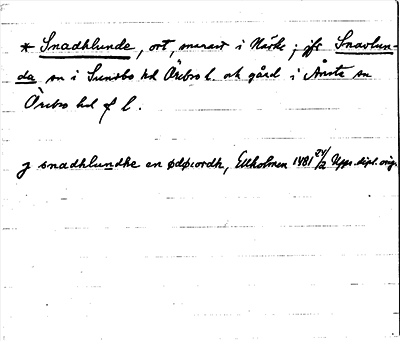 * Snadhlunde, ort, snarast i Närke; jfr Snavlun-
da sn i Sundbo hd Örebro l. och gård i Ånsta sn
Örebro hd o l.
J snadhlundhe en ødhiordh, Ekholmen 1481 24/2 Upps. dipl. orig.